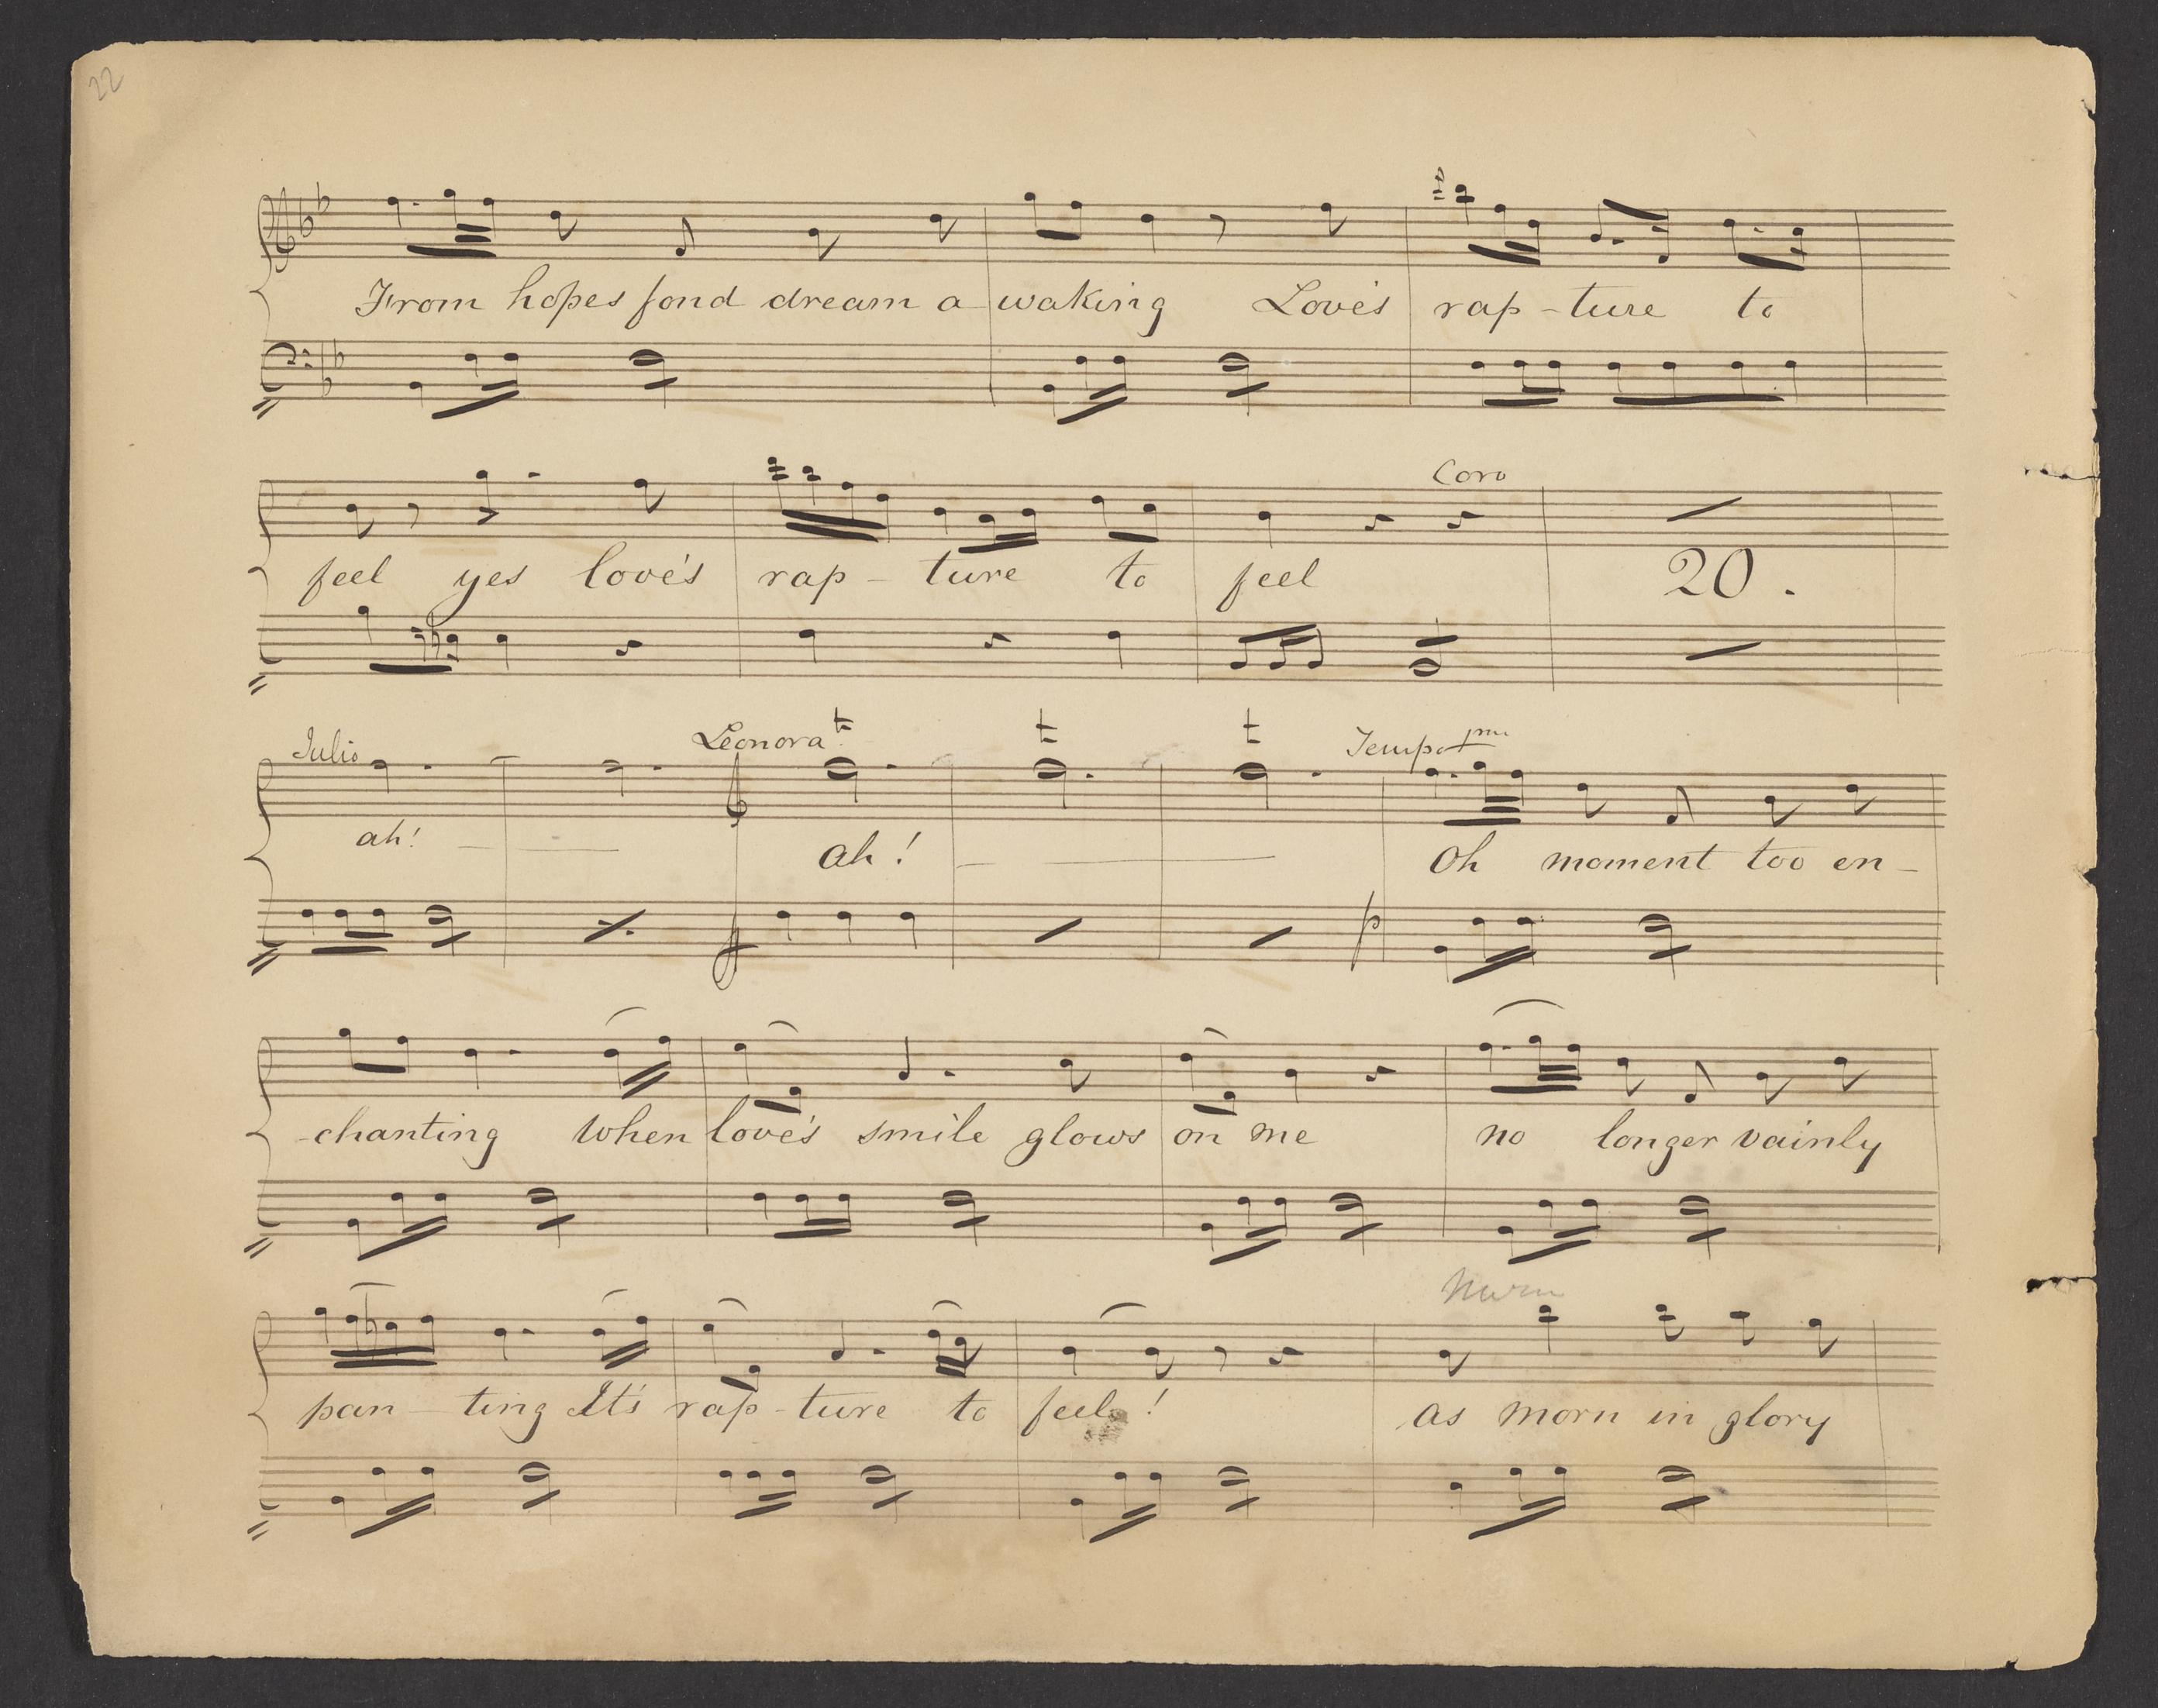 22
From hopes fond dream a waking Love's rap - ture to
Coro
feel yes love's rap - ture to feel 20.
Julio Leonora Tempo pmo
ah! ah! Oh moment too en -
p
- chanting when love's smile glows on me no longer vainly
pan - ting It's rap - ture to feel ! as morn in glory